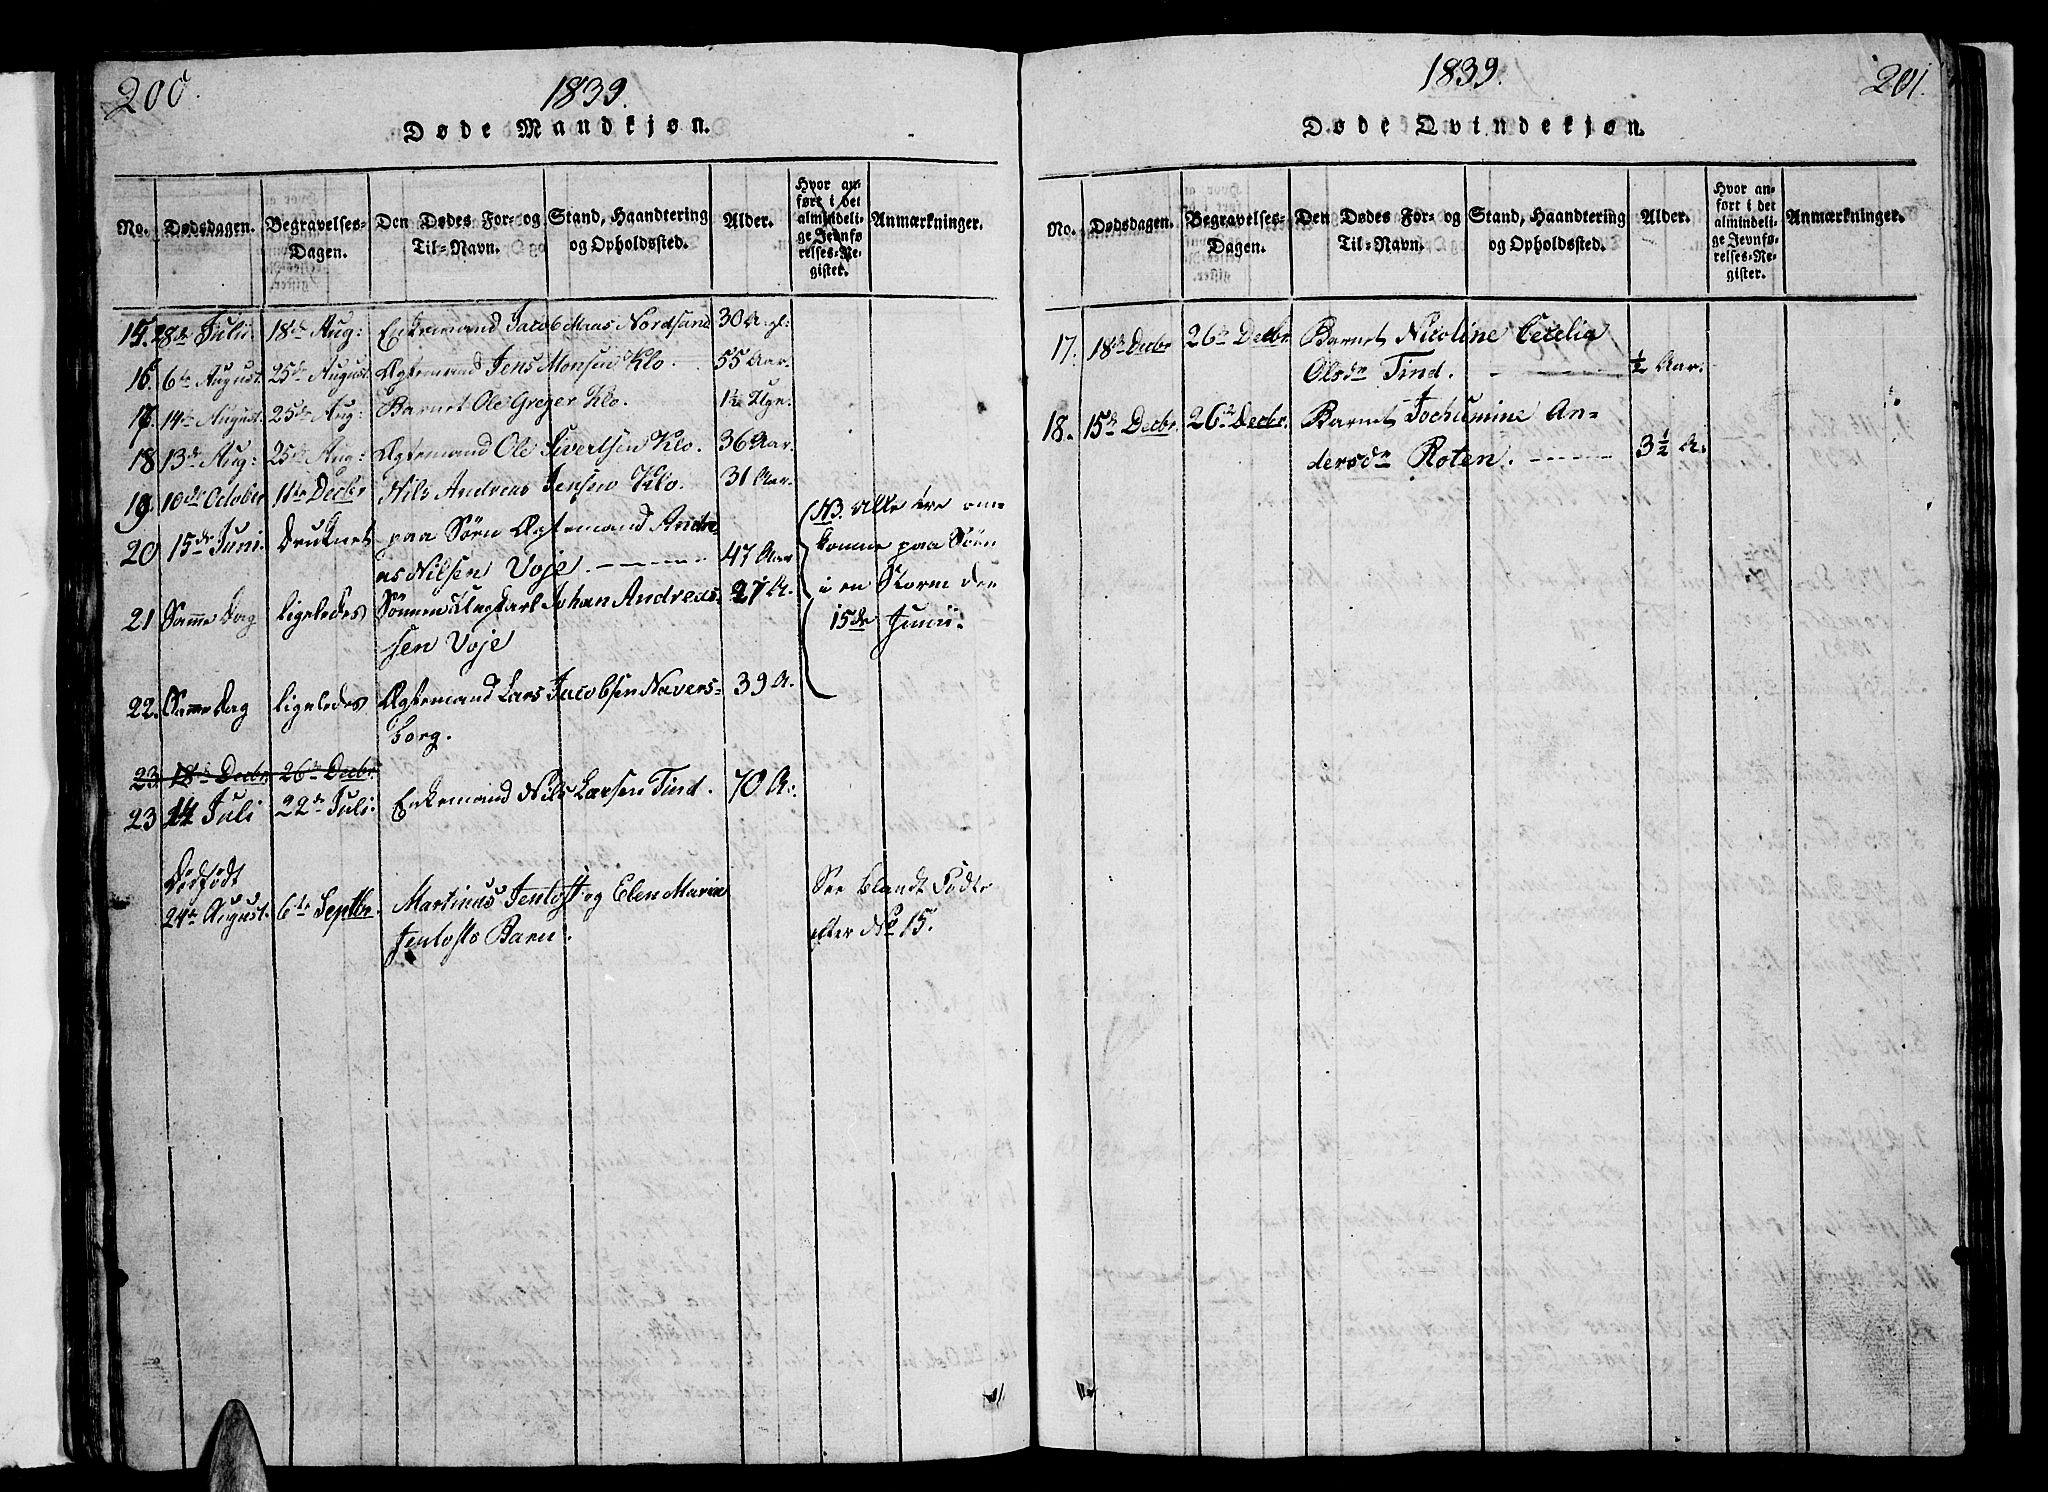 200.
1839.
Døde Mandkjøn.
No.
Dødsdagen.
Begravelses-
Dagen.
Den Dødes For- og
Til-Navn.
Stand, Haandtering
og Opholdssted.
Alder.
Hvor an-
ført i det
almindeli-
ge Jevnfø-
relses-Re-
gister.
Anmærkninger.
15. 28de Julii. 18de Aug: Enkemand Jacob Maas Nordsand 30 A gl:
16. 6te August. 25de August. Ægtemand Jens Monsen Klo. 55 Aar.
17. 14de August. 25de Aug: Barnet Ole Greger Klo.
18 13de Aug: 25de Aug: Ægtemand Ole Sivertsen Klo. 36 Aar.
19. 10de October 11te Decbr Nils Andreas Jensen Klo. 31 Aar.
20 15de Juni. Druknet paa Söen Ægtemand Andre-
as Nilsen Voje. 47 Aar
21 Samme Dag ligeledes Sönnen Ungkarl Johan Andreas-
sen Voje 27 A.
22. Samme Dag ligeledes Ægtemand Lars Jacobsen Navers-
borg. 39 A.
(NB. Alle tre om-
komne paa Söen
i en Storm den
15de Junii.
23. 18de Decbr 26de Decbr.
23 14 Juli 22de Juli. Enkemand Nils Larsen Tind. 70 A.
Dödfödt
24de August. 6te Septbr. Martinus Jentoft og Elen Maria
Jentofts Barn.
See blandt Födte
efter No 15.
201.
1839.
Døde Qvindekjøn.
No.
Dødsdagen.
Begravelses-
Dagen.
Den Dødes For- og
Til-Navn.
Stand, Haandtering
og Opholdssted.
Alder.
Hvor an-
ført i det
almindeli-
ge Jevnfø-
relses-Re-
gister.
Anmærkninger.
17. 18de Decbr 26de Decbr Barnet Nicoline Cecelia
Olsdr Tind. ½ Aar.
18. 15de Decbr. 26de Decbr. Barnet Jochumine An-
dersdr Roten. 3½ A.